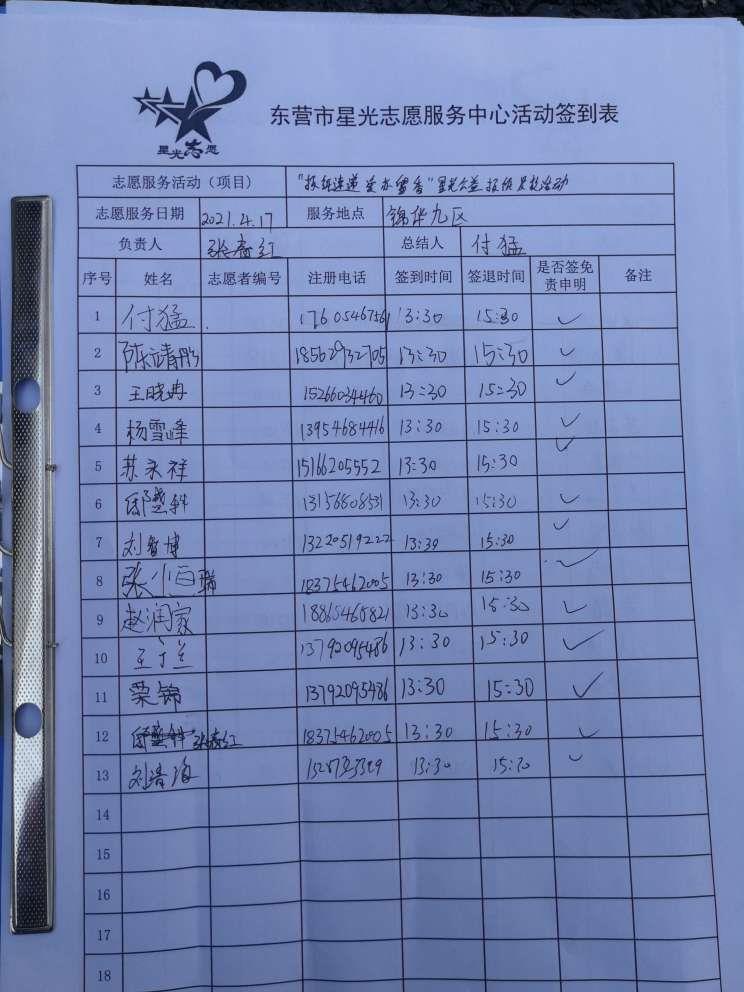 星光志愿
东营市星光志愿服务中心活动签到表
志愿服务活动（项目） "报纸速递 爱 "星光公益 活动
志愿服务日期 2021.4.17 服务地点 锦华九区
负责人 张春红 总结人 付猛
序号 姓名 志愿者编号 注册电话 签到时间 签退时间 是否签免责申明 备注
1 付猛 17605467561 13:30 15:30 ✓
2 陈靖彤 18562932705 13:30 15:30 ✓
3 王晓冉 15266034460 13:30 15:30 ✓
4 杨雪峰 13954684416 13:30 15:30 ✓
5 苏永祥 15166205552 13:30 15:30 ✓
6 13156608531 13:30 15:30 ✓
7 刘智博 13220519222 13:30 15:30 ✓
8 张 瑞 18375462005 13:30 15:30 ✓
9 赵润家 18865465821 13:30 15:30 ✓
10 王 兰 13792095486 13:30 15:30 ✓
11 荣锦 13792095486 13:30 15:30 ✓
12 张春红 18375462005 13:30 15:30 ✓
13 刘 13:30 15:30 ✓
14
15
16
17
18